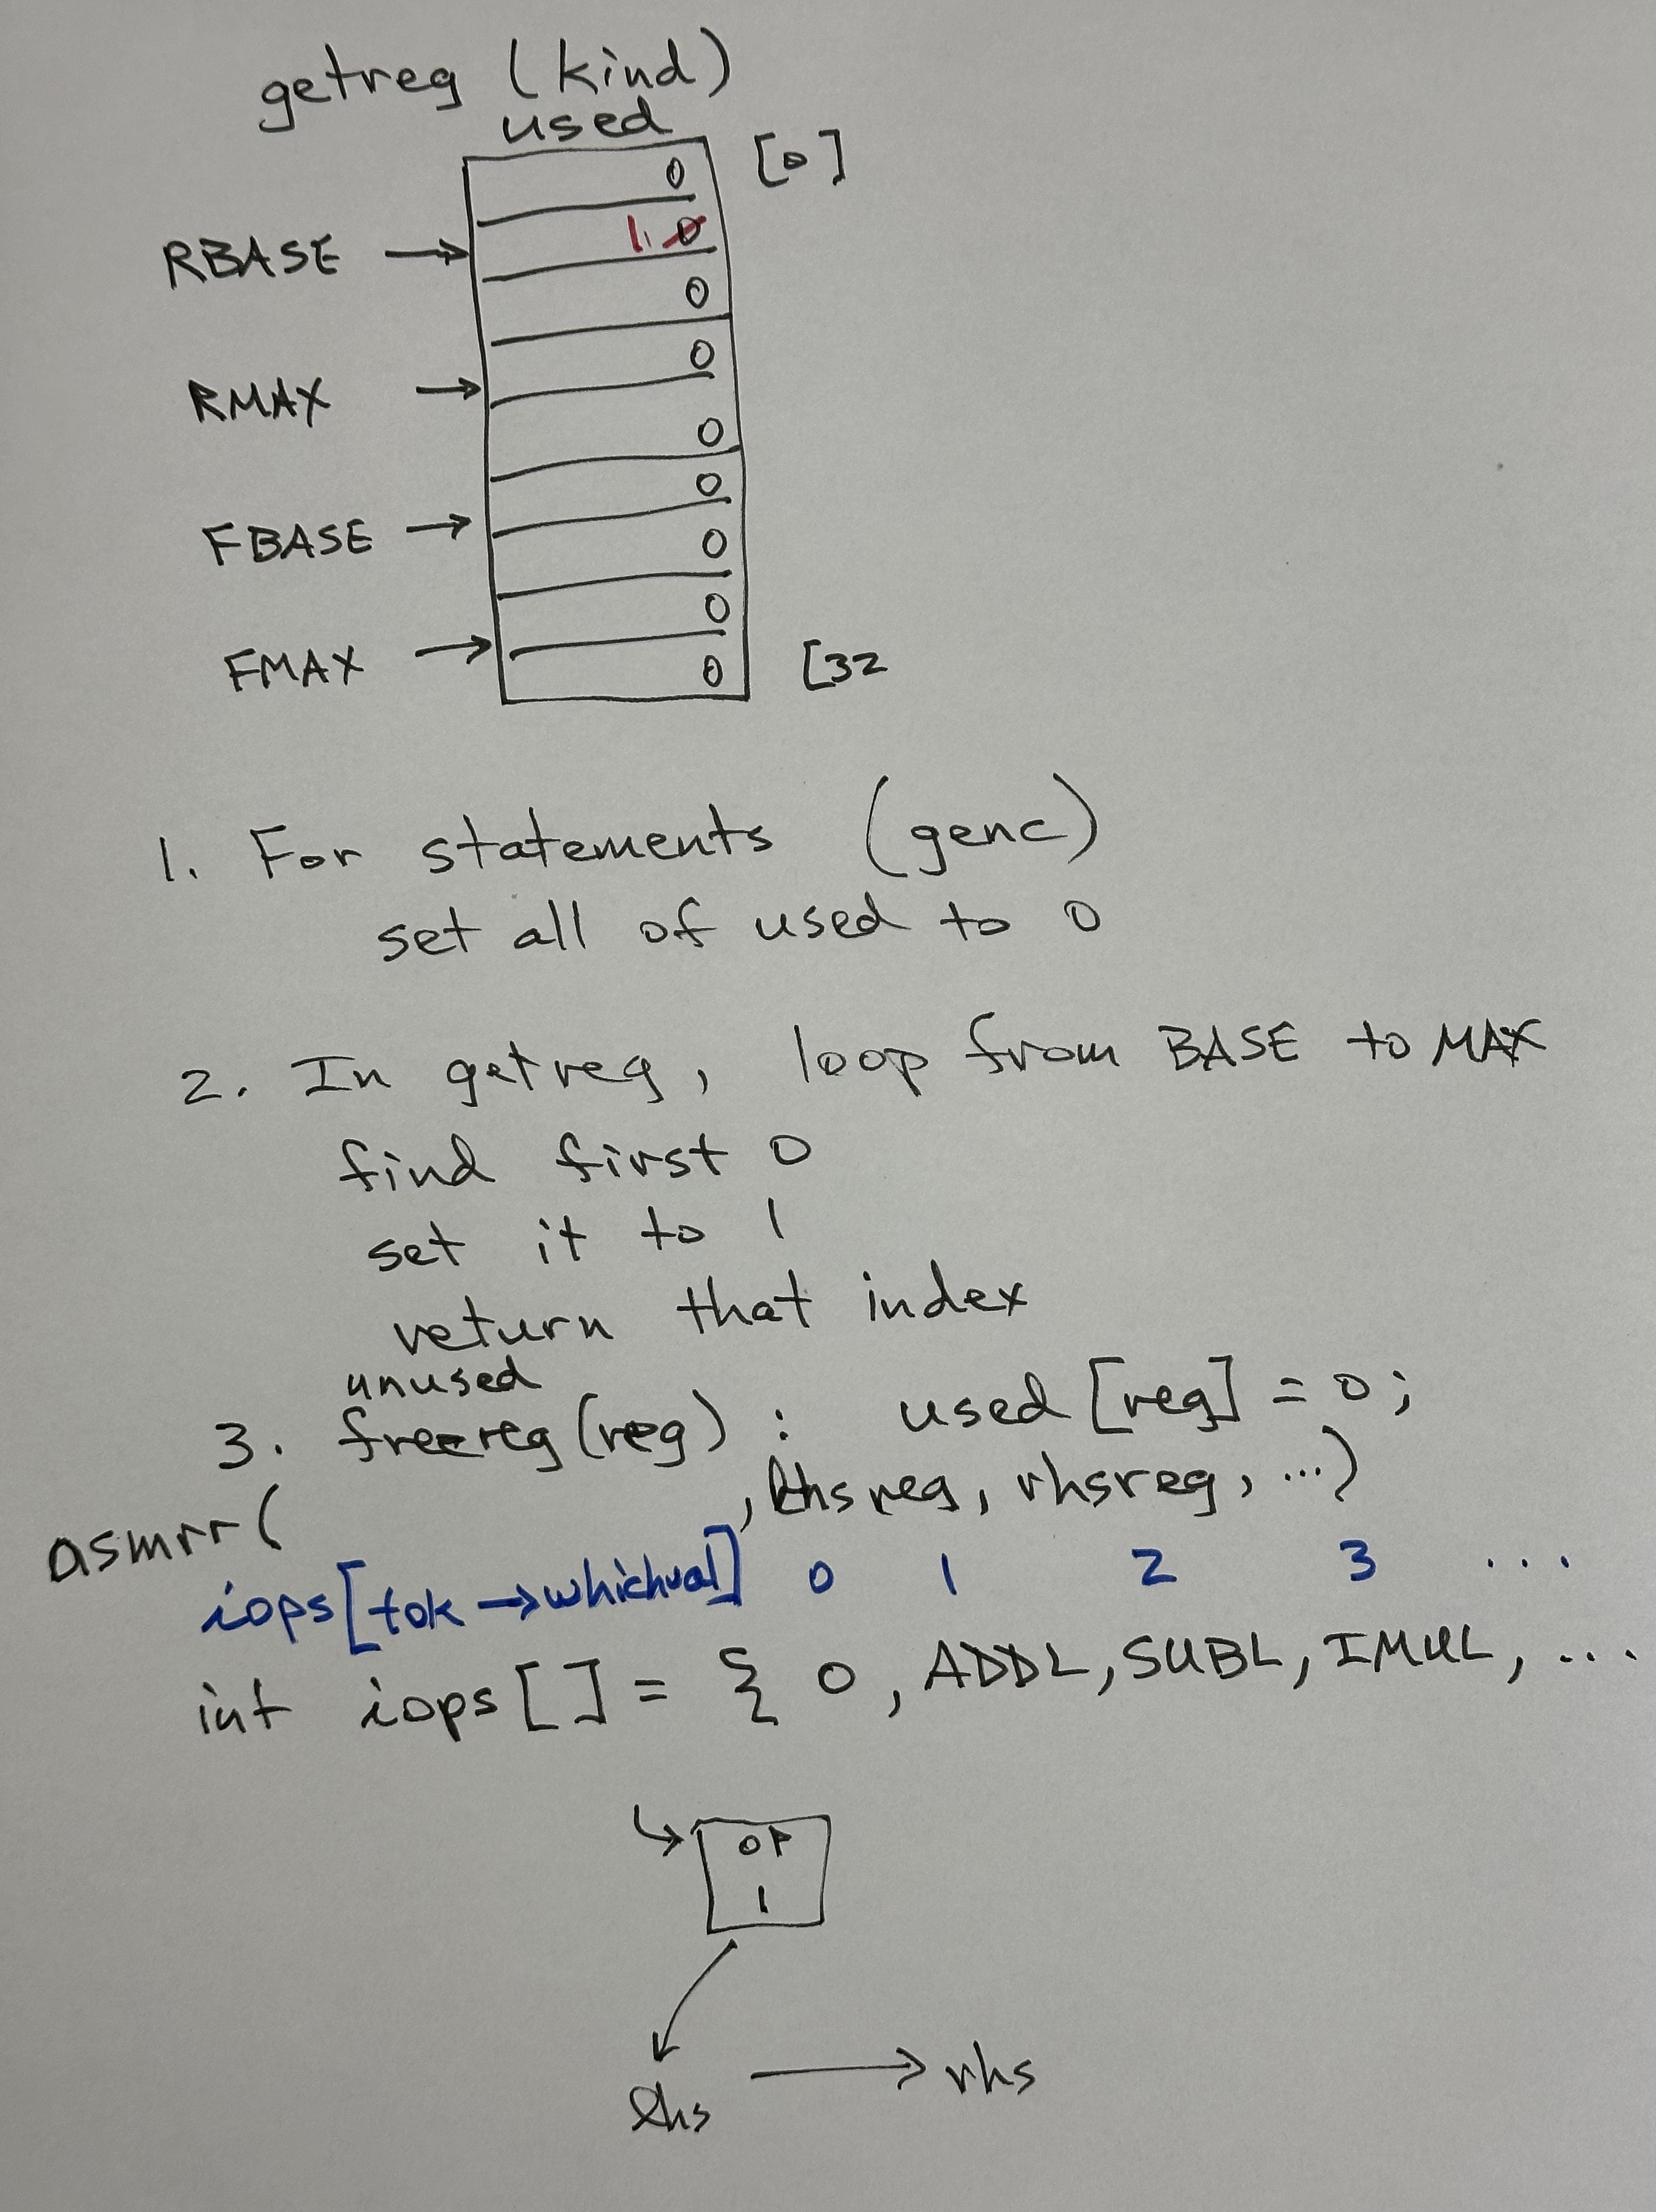 getreg (kind)
used
0 [0]
RBASE → 1 0
0
0
RMAX →
0
0
FBASE →
0
0
FMAX →
0 [32
1. For statements (genc)
set all of used to 0
2. In getreg, loop from BASE to MAX
find first 0
set it to 1
return that index
unused
3. freereg(reg) : used [reg] = 0;
asmrr( , lhsreg, rhsreg, ...)
iops[tok→whichval] 0 1 2 3 ...
int iops [] = { 0, ADDL, SUBL, IMUL, ...
OP
1
lhs → rhs